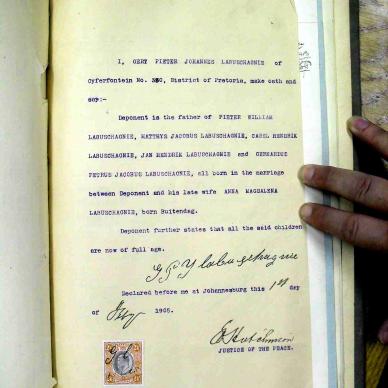 I, GERT PIETER JOHANNES LABUSCHAGNIE of
Cyferfontein No. District of Pretoria, make oath and
say:-
Deponent is the father of PIETER WILLIAM
LABUSCHAGNIE, MATTHYS JACOBUS LABUSCHAGNIE, CAREL HENDRIK
LABUSCHAGNIE, JAN HENDRIK LABUSCHAGNIE and GERHARDUS
PETRUS JACOBUS LABUSCHAGNIE, all born in the marriage
between Deponent and his late wife ANNA MAGDALENA
LABUSCHAGNIE, born Buitendag.
Deponent further states that all the said children
are now of full age.
G P J labuschagnie
Declared before me at Johannesburg this 1st day
of 1905.
Hutchinson
JUSTICE OF THE PEACE.